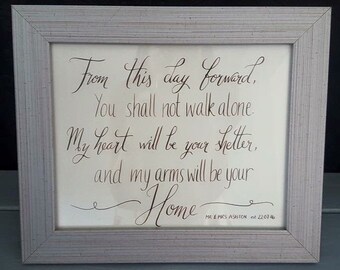 From this day forward,
You shall not walk alone
My heart will be your shelter,
and my arms will be your
Home
MR & MRS ASHTON